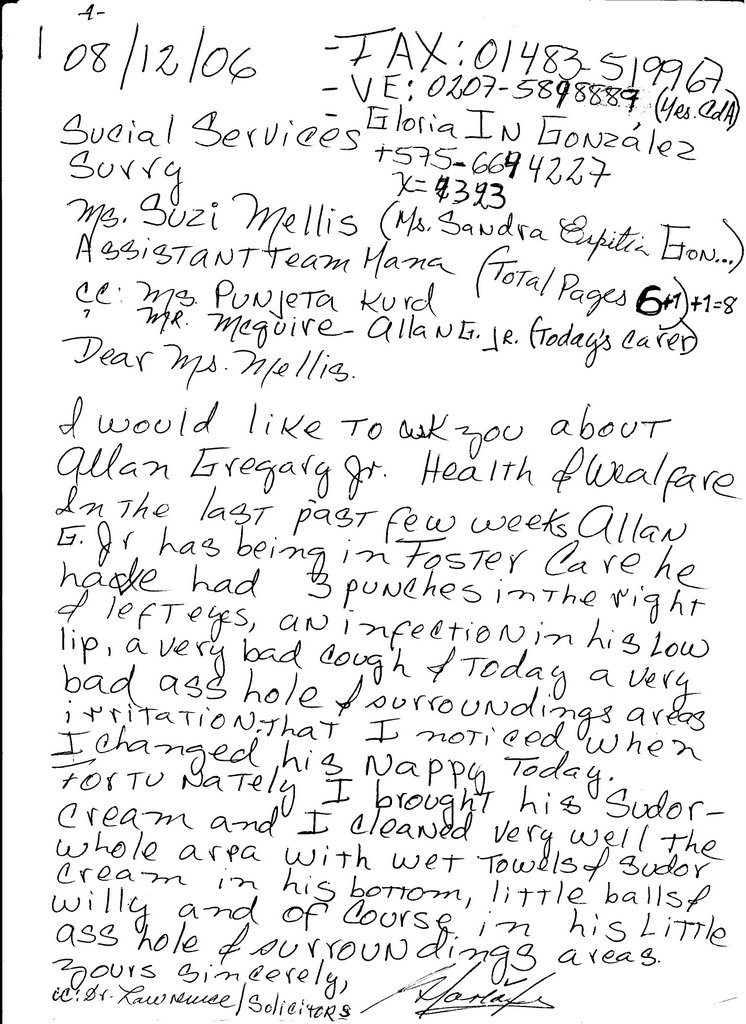 -1-
08/12/06 - FAX: 01483-519967
- VE: 0207-5898887 (Yes. CdA)
Social Services - Gloria IN González
Surry +575-6694227
X=1393
Ms. Suzi Mellis (Ms. Sandra Espitia Gon...)
Assistant Team Mana (Total Pages 6+1)+1=8
CC: Ms. Punjeta Kurd
Mr. Mcguire - Allan G. Jr. (Today's carer)
Dear Ms. Mellis.
I would like to ask you about
Allan Gregary Jr. Health & Wealfare
In the last past few weeks, Allan
G. Jr has being in Foster Care he
had 3 punches in the right
& left eyes, an infection in his low
lip, a very bad cough & Today a very
bad ass hole & surroundings areas
irritation. that I noticed when
I changed his Nappy Today.
Fortunately I brought his Sudor-
cream and I cleaned very well the
whole area with wet Towels & Sudor
cream in his bottom, little balls &
willy and of course in his Little
ass hole & surroundings areas.
yours sincerely,
cc: Dr. Lawrence/Solicitors